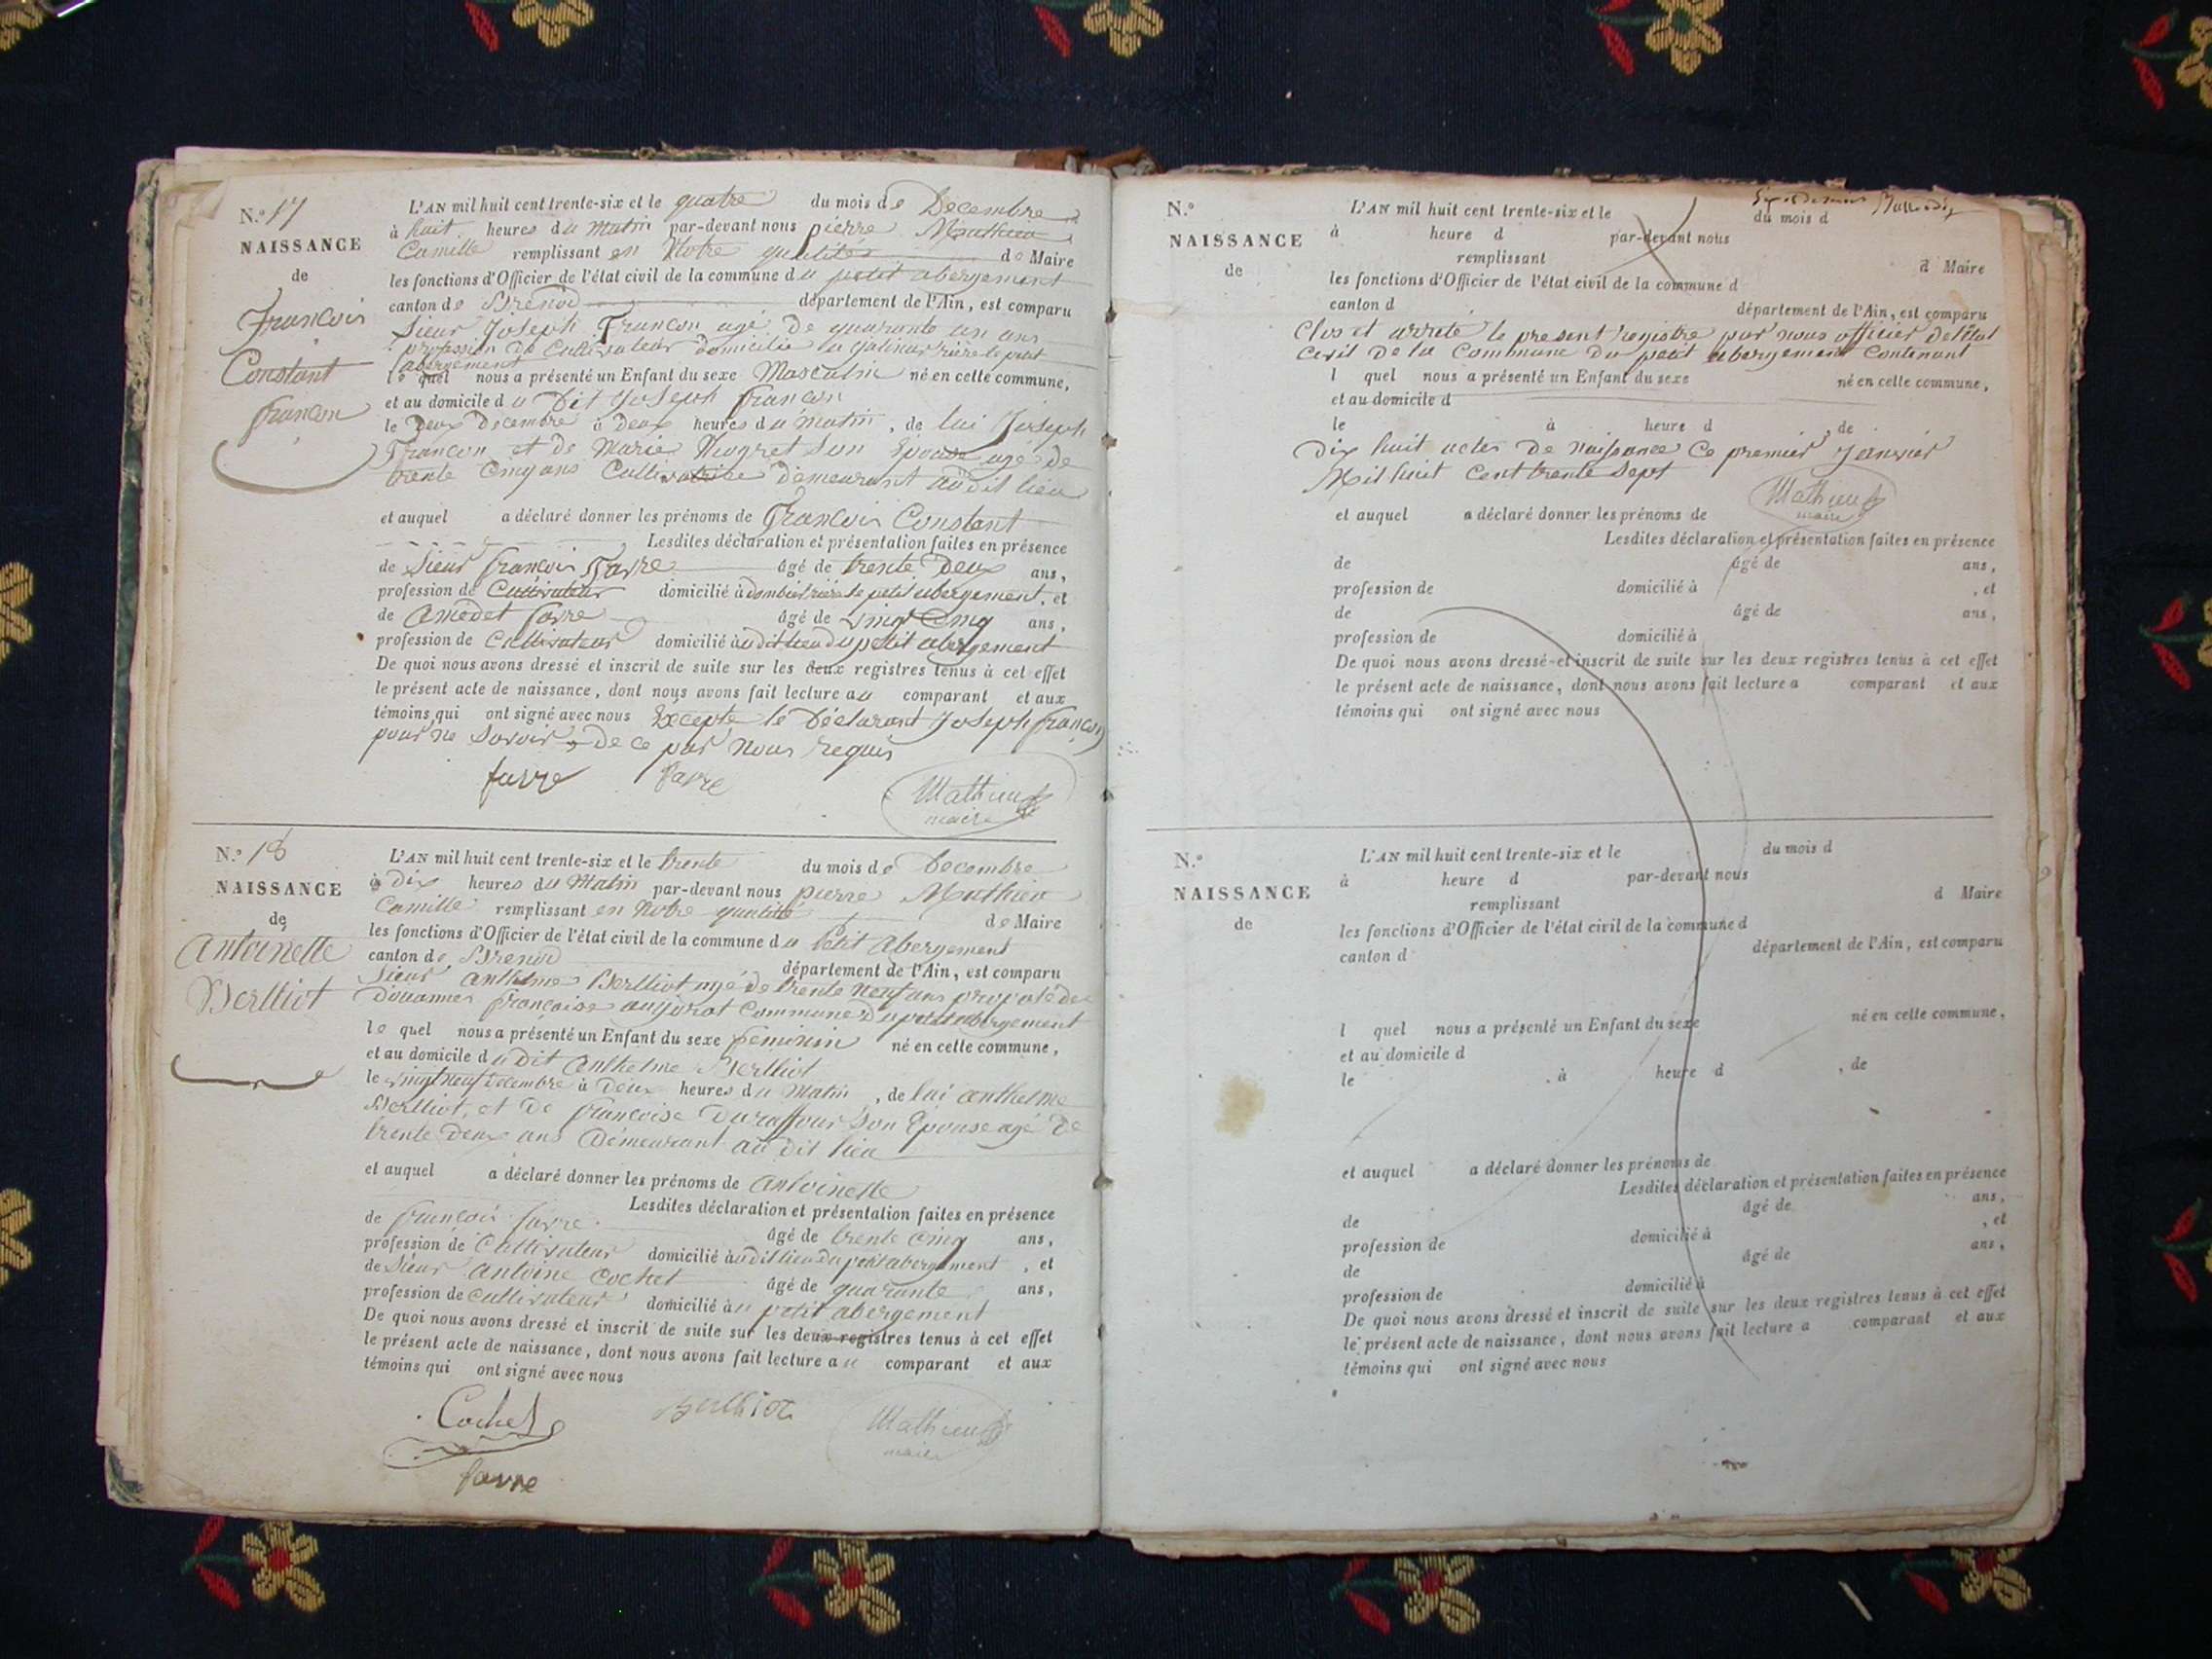 N.º 17
NAISSANCE
de
François
Constant
françon
L'AN mil huit cent trente-six et le quatre du mois de Decembre
à huit heures du Matin par-devant nous pierre Mathieu
Camille remplissant en Notre qualités de Maire
les fonctions d'Officier de l'état civil de la commune du petit abergement
canton de Brenod département de l'Ain, est comparu
Sieur Joseph Françon agé de quarante un ans
profession de Cultivateur domicilié a rière le petit
abergement
le quel nous a présenté un Enfant du sexe Masculin né en cette commune,
et au domicile du Dit Joseph françon
le Deux Decembre à Deux heures du matin, de lui Joseph
Françon et de Marie Hugret Son Epouse agé de
trente Cinq ans Cultivatrice demeurant au dit lieu
et auquel a déclaré donner les prénoms de François Constant
Lesdites déclaration et présentation faites en présence
de Sieur françois Favre âgé de trente Deux ans,
profession de Cultivateur domicilié à rière le petit abergement, et
de Amedet favre âgé de vingt Cinq ans,
profession de Cultivateur domicilié au dit lieu du petit abergement
De quoi nous avons dressé et inscrit de suite sur les deux registres tenus à cet effet
le présent acte de naissance, dont nous avons fait lecture au comparant et aux
témoins qui ont signé avec nous Excepté le Déclarant Joseph françon
pour ne Savoir de ce par Nous requis
favre favre Mathieu
maire
N.º 18
NAISSANCE
de
Antoinette
Berlliot
L'AN mil huit cent trente-six et le trente du mois de Decembre
à Dix heures du Matin par-devant nous pierre Mathieu
Camille remplissant en Notre qualité de Maire
les fonctions d'Officier de l'état civil de la commune du Petit Abergement
canton de Brenod département de l'Ain, est comparu
Sieur Anthelme Berlliot agé de trente neuf ans préposé des
Douannes françaises au jorat Commune du petit abergement
le quel nous a présenté un Enfant du sexe feminin né en cette commune,
et au domicile du Dit Anthelme Berlliot
le vingt neuf Decembre à Deux heures du Matin, de lui anthelme
Berlliot, et de françoise Duraffour Son Epouse agé De
trente Deux ans Demeurant au dit lieu
et auquel a déclaré donner les prénoms de Antoinette
Lesdites déclaration et présentation faites en présence
de françois favre âgé de trente cinq ans,
profession de Cultivateur domicilié au dit lieu du petit abergement, et
de Sieur Antoine Cochet âgé de quarante ans,
profession de Cultivateur domicilié au petit abergement
De quoi nous avons dressé et inscrit de suite sur les deux registres tenus à cet effet
le présent acte de naissance, dont nous avons fait lecture au comparant et aux
témoins qui ont signé avec nous
Cochet Berlliot Mathieu
maire
favre
N.º
NAISSANCE
de
L'AN mil huit cent trente-six et le du mois d
à heure d par-devant nous
remplissant d Maire
les fonctions d'Officier de l'état civil de la commune d
canton d département de l'Ain, est comparu
Clos et arrêté le present registre par nous officier de l'Etat
Civil de la Commune du petit abergement Contenant
l quel nous a présenté un Enfant du sexe né en cette commune,
et au domicile d
le à heure d , de
Dix huit actes de naissance Ce premier Janvier
Mil huit Cent trente Sept
Mathieu
maire
et auquel a déclaré donner les prénoms de
Lesdites déclaration et présentation faites en présence
de âgé de ans,
profession de domicilié à , et
de âgé de ans,
profession de domicilié à
De quoi nous avons dressé et inscrit de suite sur les deux registres tenus à cet effet
le présent acte de naissance, dont nous avons fait lecture a comparant et aux
témoins qui ont signé avec nous
N.º
NAISSANCE
de
L'AN mil huit cent trente-six et le du mois d
à heure d par-devant nous
remplissant d Maire
les fonctions d'Officier de l'état civil de la commune d
canton d département de l'Ain, est comparu
l quel nous a présenté un Enfant du sexe né en cette commune,
et au domicile d
le à heure d , de
et auquel a déclaré donner les prénoms de
Lesdites déclaration et présentation faites en présence
de âgé de ans,
profession de domicilié à , et
de âgé de ans,
profession de domicilié à
De quoi nous avons dressé et inscrit de suite sur les deux registres tenus à cet effet
le présent acte de naissance, dont nous avons fait lecture a comparant et aux
témoins qui ont signé avec nous